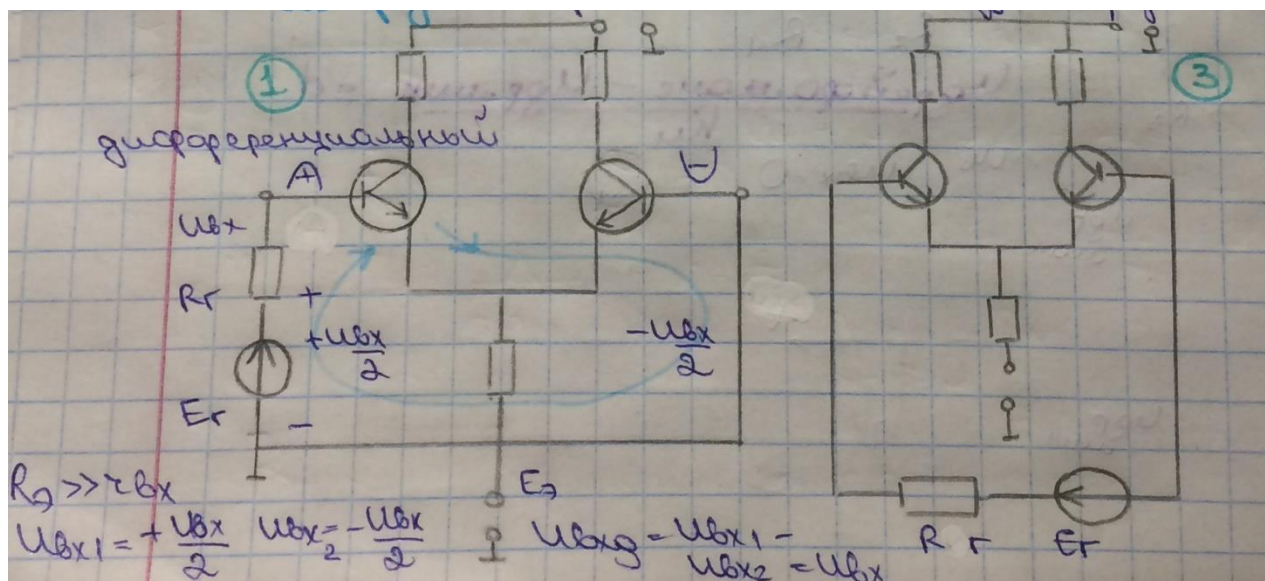 1
3
дифференциальный
A
U
Uвх
Rг
+
+Uвх/2
-Uвх/2
Eг
-
Rэ >> rвх
Eэ
Uвх1 = +Uвх/2 Uвх2 = -Uвх/2
Uвхд = Uвх1 -
Uвх2 = Uвх
Rг Eг